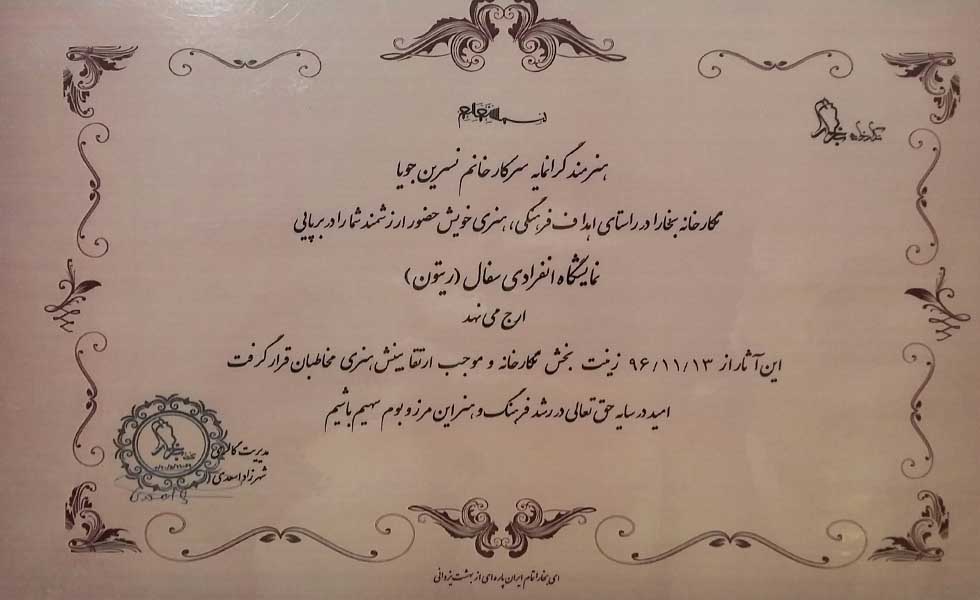 بسمه تعالی
نگارخانه بخارا
هنرمند گرانمایه سرکار خانم نسرین جویا
نگارخانه بخارا در راستای اهداف فرهنگی، هنری خویش حضور ارزشمند شما را در برپایی
نمایشگاه انفرادی سفال (ریتون)
ارج می نهد
این آثار از ۹۶/۱۱/۱۳ زینت بخش نگارخانه و موجب ارتقا بینش هنری مخاطبان قرار گرفت
امید در سایه حق تعالی در رشد فرهنگ و هنر این مرز و بوم سهیم باشیم
مدیریت گالری
شهرزاد اسعدی
ای بخارا نام ایران پاره ای از بهشت یزدانی